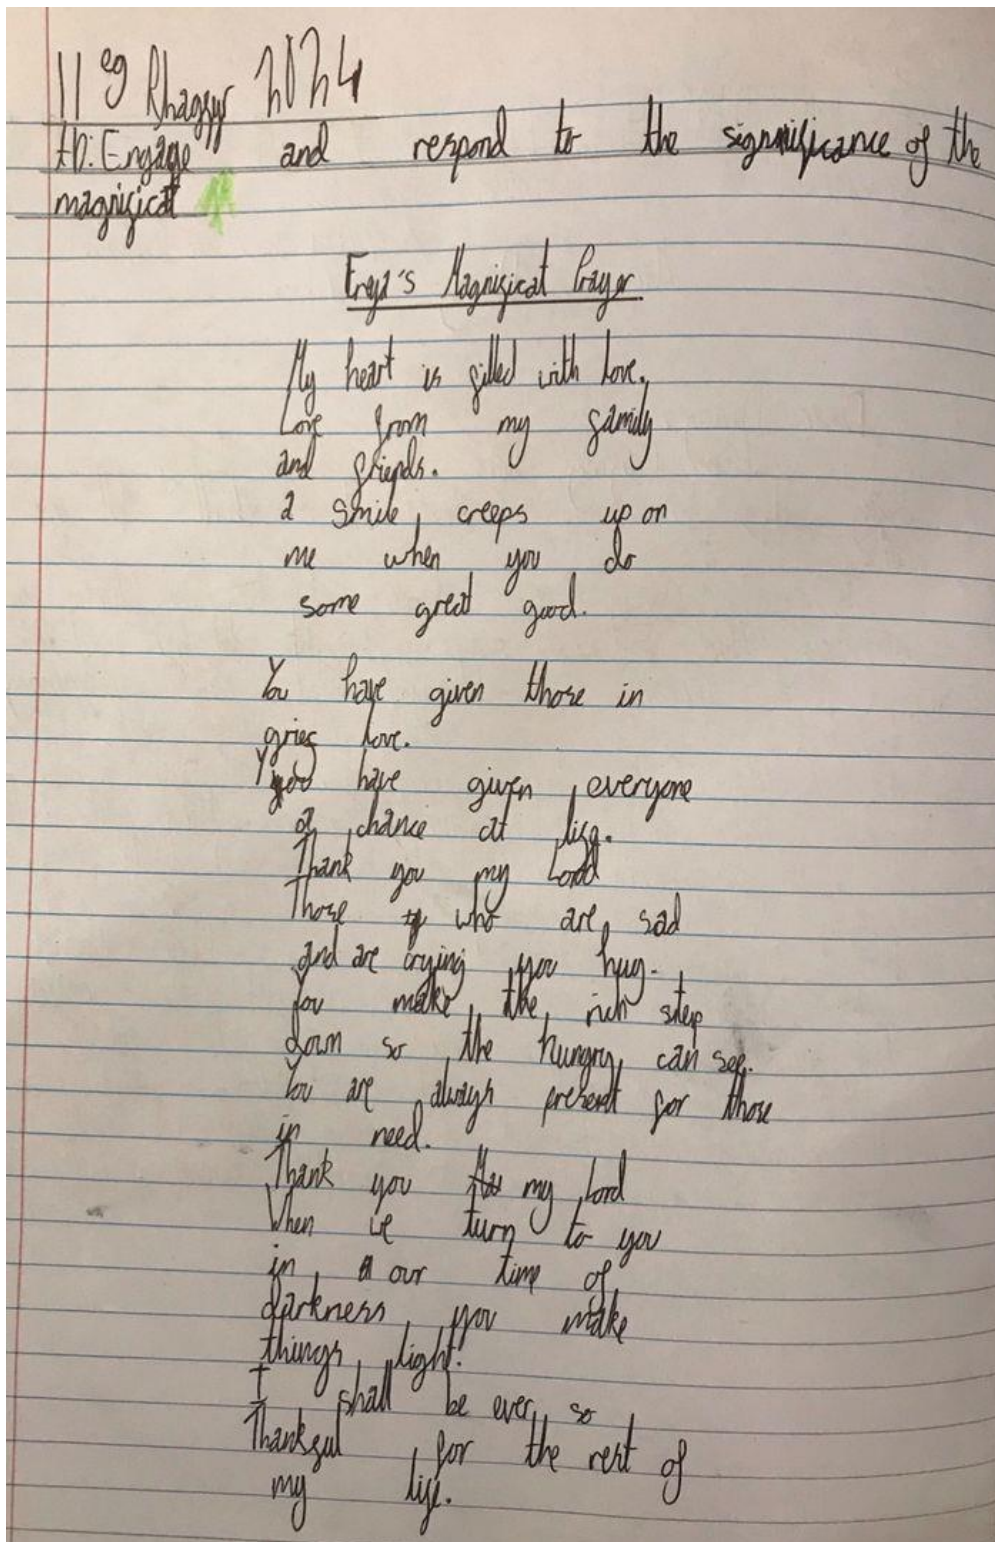 11eg Rhagfyr 2024
AD: Engage and respond to the significance of the
magnificat
Freya's Magnificat Prayer
My heart is filled with love,
Love from my family
and friends.
a smile creeps up on
me when you do
some great good.
You have given those in
grief love.
You have given everyone
a chance at life.
Thank you my Lord
Those who are sad
and are crying you hug.
You make the rich step
down so the hungry can see.
You are always present for those
in need.
Thank you my Lord
When we turn to you
in our time of
darkness you make
things light.
I shall be ever so
Thankful for the rest of
my life.